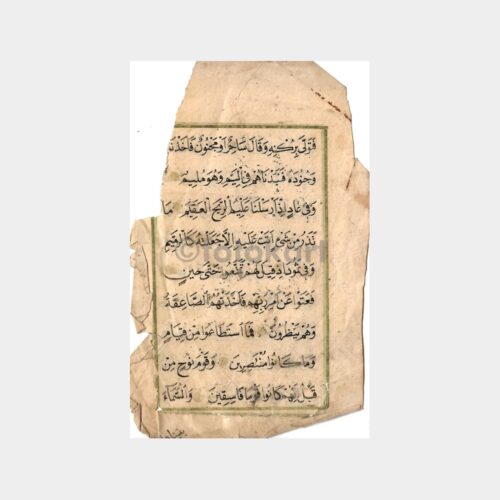 فَتَوَلَّىٰ بِرُكْنِهِ وَقَالَ سَاحِرٌ أَوْ مَجْنُونٌ فَأَخَذْنَاهُ
وَجُنُودَهُ فَنَبَذْنَاهُمْ فِي الْيَمِّ وَهُوَ مُلِيمٌ
وَفِي عَادٍ إِذْ أَرْسَلْنَا عَلَيْهِمُ الرِّيحَ الْعَقِيمَ مَا
تَذَرُ مِنْ شَيْءٍ أَتَتْ عَلَيْهِ إِلَّا جَعَلَتْهُ كَالرَّمِيمِ
وَفِي ثَمُودَ إِذْ قِيلَ لَهُمْ تَمَتَّعُوا حَتَّى حِينٍ
فَعَتَوْا عَنْ أَمْرِ رَبِّهِمْ فَأَخَذَتْهُمُ الصَّاعِقَةُ
وَهُمْ يَنْظُرُونَ فَمَا اسْتَطَاعُوا مِنْ قِيَامٍ
وَمَا كَانُوا مُنْتَصِرِينَ وَقَوْمَ نُوحٍ مِنْ
قَبْلُ إِنَّهُمْ كَانُوا قَوْمًا فَاسِقِينَ وَالسَّمَاءَ